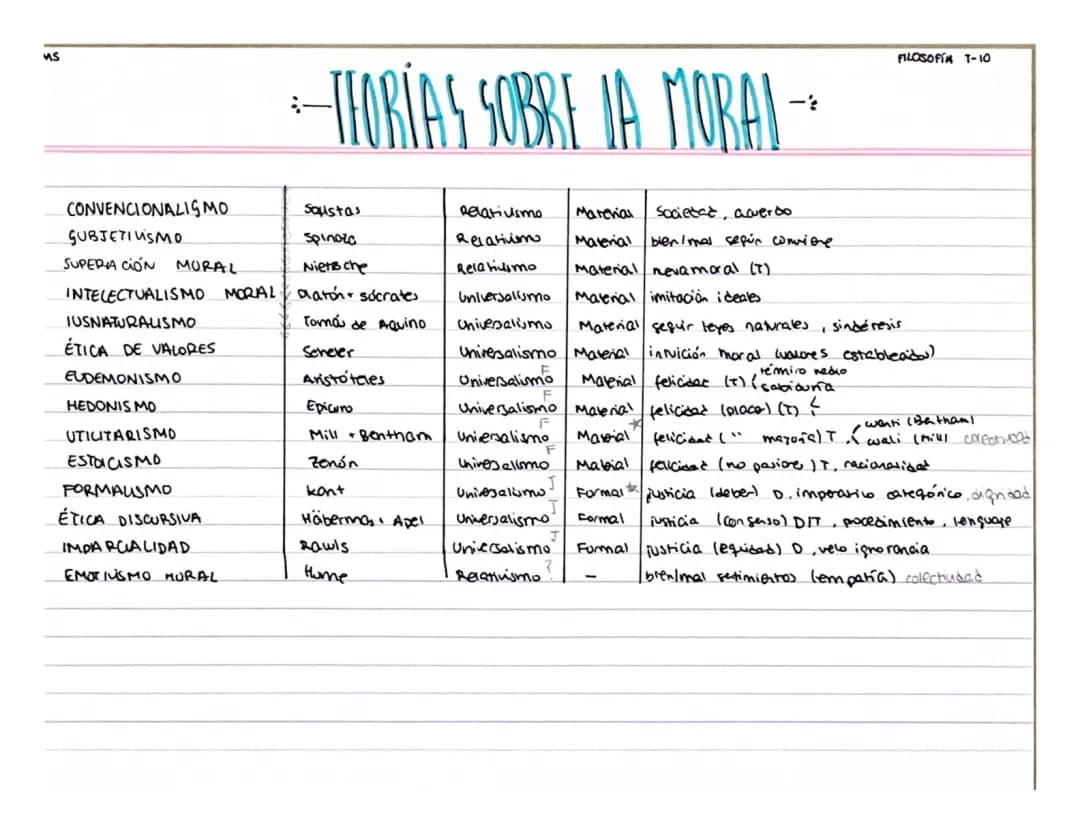 MS
FILOSOFÍA T-10
TEORÍAS SOBRE LA MORAL
CONVENCIONALISMO Sofistas Relativismo Material Societat, acuerdo
SUBJETIVISMO Spinoza Relativismo Material bien/mal según conviene
SUPERACIÓN MORAL Nietzsche Relativismo Material nueva moral (T)
INTELECTUALISMO MORAL Platón + Sócrates Universalismo Material imitación ideales
IUSNATURALISMO Tomás de Aquino Universalismo Material seguir leyes naturales, sindéresis
ÉTICA DE VALORES Scheler Universalismo Material intuición moral (valores establecidos)
EUDEMONISMO Aristóteles Universalismo F Material felicidad (T) término medio sabiduría
HEDONISMO Epicuro Universalismo F Material felicidad (placer) (T)
UTILITARISMO Mill + Bentham Universalismo F Material * felicidad (" mayoría) T (Bentham) (Mill)
ESTOICISMO Zenón Universalismo F Material felicidad (no pasiones) T, racionalidad
FORMALISMO Kant Universalismo J Formal * justicia (deber) D. imperativo categórico, dignidad
ÉTICA DISCURSIVA Häbermas, Apel Universalismo J Formal justicia (consenso) D/T, procedimiento, lenguage
IMPARCIALIDAD Rawls Universalismo J Formal justicia (equidad) D, velo ignorancia
EMOTIVISMO MORAL Hume Relativismo ? - bien/mal setimientos (empatía) colectividad